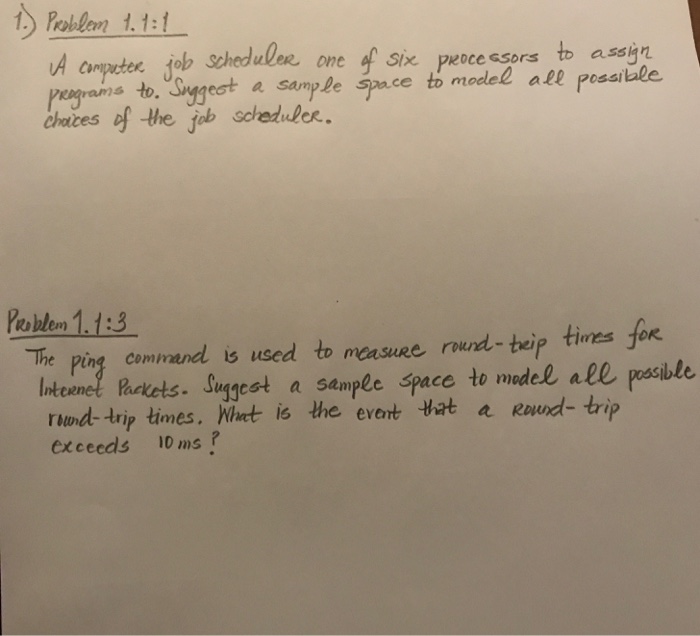 1.) Problem 1.1:1
A computer job scheduler one of six processors to assign
programs to. Suggest a sample space to model all possible
choices of the job scheduler.
Problem 1.1:3
The ping command is used to measure round-trip times for
Internet Packets. Suggest a sample space to model all possible
round-trip times. What is the event that a Round-trip
exceeds 10 ms?